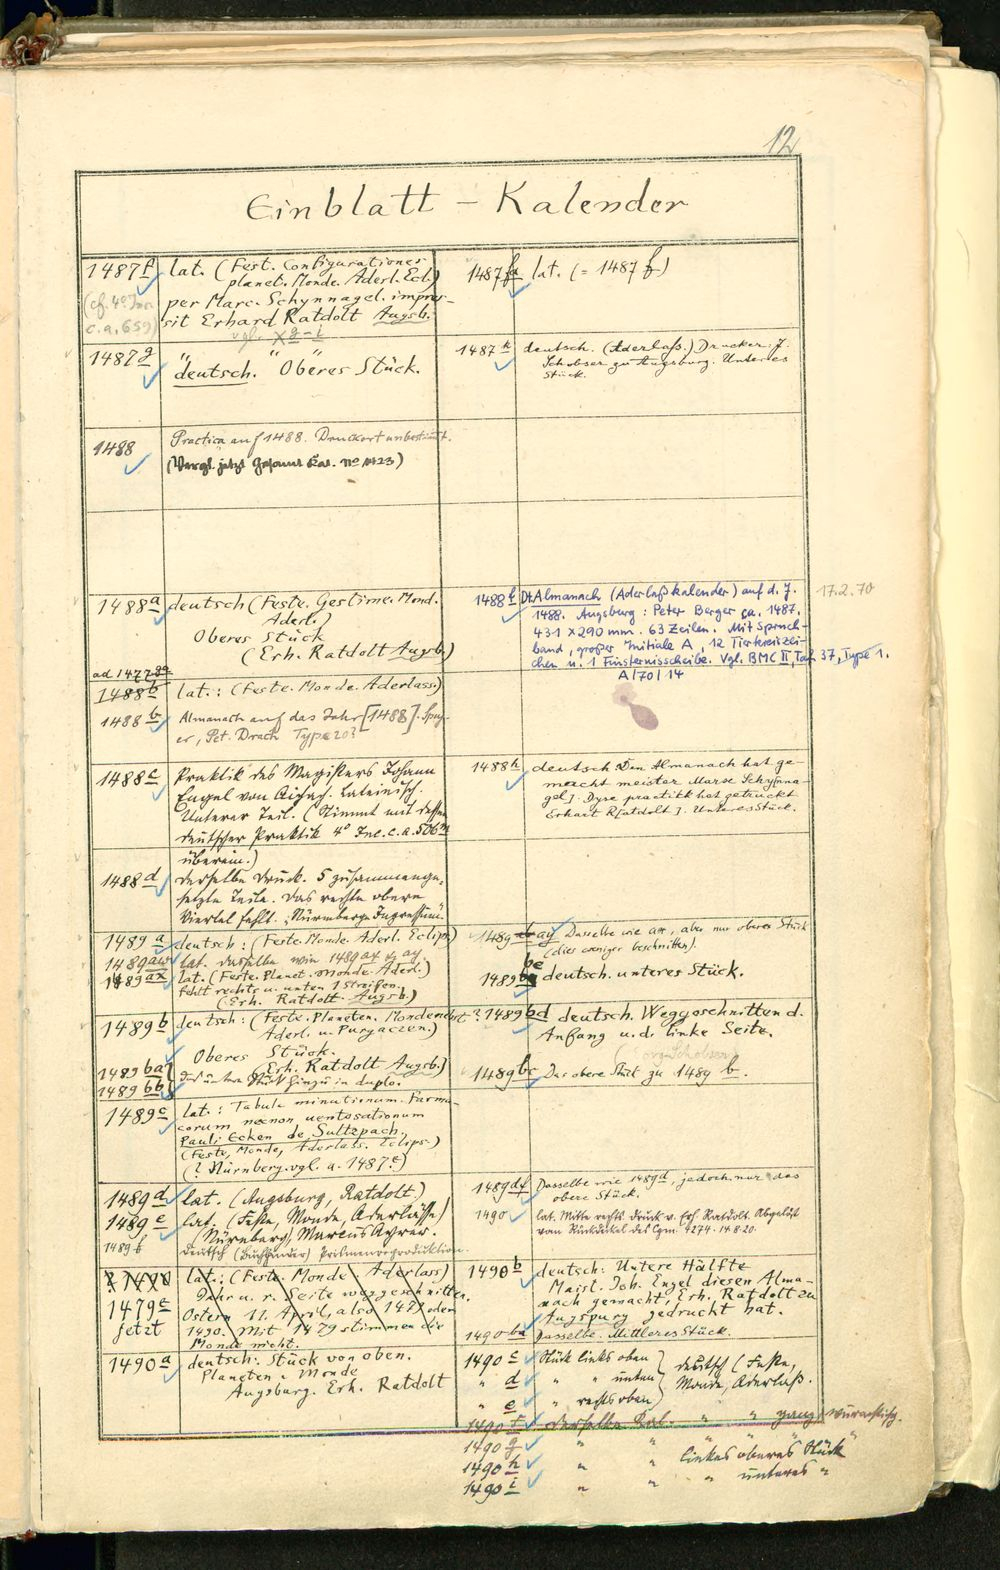 12
Einblatt - Kalender
1487 f lat. (Fest. Configurationes
planet. Monde. Aderl. Ecl.)
(cf. 4° Inc. per Marc. Schynnagel. impres-
c. a. 659) sit Erhard Ratdolt Augsb.
vgl. x g - i
1487 g " " "
deutsch. Oberes Stück.
1488 Practica auf 1488. Druckort unbestimmt.
(Vergl. jetzt Gesamt Kat. No 1423)
1488 a deutsch (Feste. Gestirne. Mond.
Aderl.)
Oberes Stück
(Erh. Ratdolt Augsb.)
ad 1477
1488 b lat.: (Feste. Monde. Aderlass.)
1488 b Almanach auf das Jahr [1488]. Spey-
er, Pet. Drach Type 20?
1488 c Praktik des Magisters Johann
Engel von Aichach. Lateinisch.
Unterer Teil. (Stimmt mit dessen
deutscher Praktik 4° Inc. c. a. 506
überein.)
1488 d Derselbe Druck. 5 zusammenge-
setzte Teile. Das rechte obere
Viertel fehlt. "Nürmberge Impressum"
1489 a deutsch: (Feste. Monde. Aderl. Eclips.)
1489 aw lat. dasselbe wie 1489 ax u. ay.
1489 ax lat. (Feste. Planet. Monde. Aderl.)
fehlt rechts u. unten 1 Streifen.
(Erh. Ratdolt. Augsb.)
1489 b deutsch: (Feste. Planeten. Monde
Aderl. u. Purgaczen.)
Oberes Stück.
1489 ba Erh. Ratdolt Augsb.)
1489 bb das untere Stück hinzu in duplo.
1489 c lat.: Tabula minutionum. Farma-
corum necnon uentosationum
Pauli Ecken de Sultzpach.
(Feste, Monde, Aderlass. Eclips.)
(? Nürnberg. vgl. a. 1487 e)
1489 d lat. (Augsburg, Ratdolt.)
1489 e lat. (Feste, Monde, Aderlässe)
(Nürnberg) Marcus Ayrer.
1489 f deutsch (Buchbinder)
? 1490 lat.: (Feste. Monde. Aderlass)
Jahr u. r. Seite weggeschnitten.
1479 e Ostern 11. April, also 1479 oder
jetzt 1490. Mit 1479 stimmen die
Monde nicht.
1490 a deutsch: Stück von oben.
Planeten. Monde
Augsburg. Erh. Ratdolt
1487 fa lat. (= 1487 f)
1487 h deutsch. (Aderlaß.) Drucker: J.
Schobser zu Augsburg. Unteres
Stück.
1488 f Dt. Almanach (Aderlaßkalender) auf d. J. 17.2.70
1488. Augsburg: Peter Berger ca. 1487.
431 x 290 mm. 63 Zeilen. Mit Spruch-
band, großer Initiale A, 12 Tierkreiszei-
chen u. 1 Finsternisscheibe. Vgl. BMC II, Taf. 37, Type 1.
A/70/14
1488 h deutsch Den Almanach hat ge-
macht meister Marse Schy[nna-
gel]. Dyse practick hat getruckt
Erhart R[atdolt]. Unteres Stück.
1489 ay Dasselbe wie ax, aber nur oberes Stück
(dies weniger beschnitten).
be
1489 deutsch. unteres Stück.
? 1489 bd deutsch. Weggeschnitten d.
Anfang u. d. linke Seite.
(Georg Schobser)
1489 bc Das obere Stück zu 1489 b.
1489 df Dasselbe wie 1489 d, jedoch nur das
obere Stück.
1490 lat. Mitte rechts. Druck v. Erh. Ratdolt. Abgelöst
vom Rückdeckel des Cgm. 4274. 14.8.20
1490 b deutsch: Untere Hälfte
Maist. Joh. Engel diesen Alma-
nach gemacht, Erh. Ratdolt zu
Augspurg gedruckt hat.
1490 ba Dasselbe. Mittleres Stück.
1490 c Stück links oben } deutsch (Feste,
" d " " unten } Monde, Aderlaß.
" e " rechts oben }
1490 f derselbe Kal. " " ganz
1490 g " " " linkes oberes Stück
1490 h " " " unteres "
1490 i " "